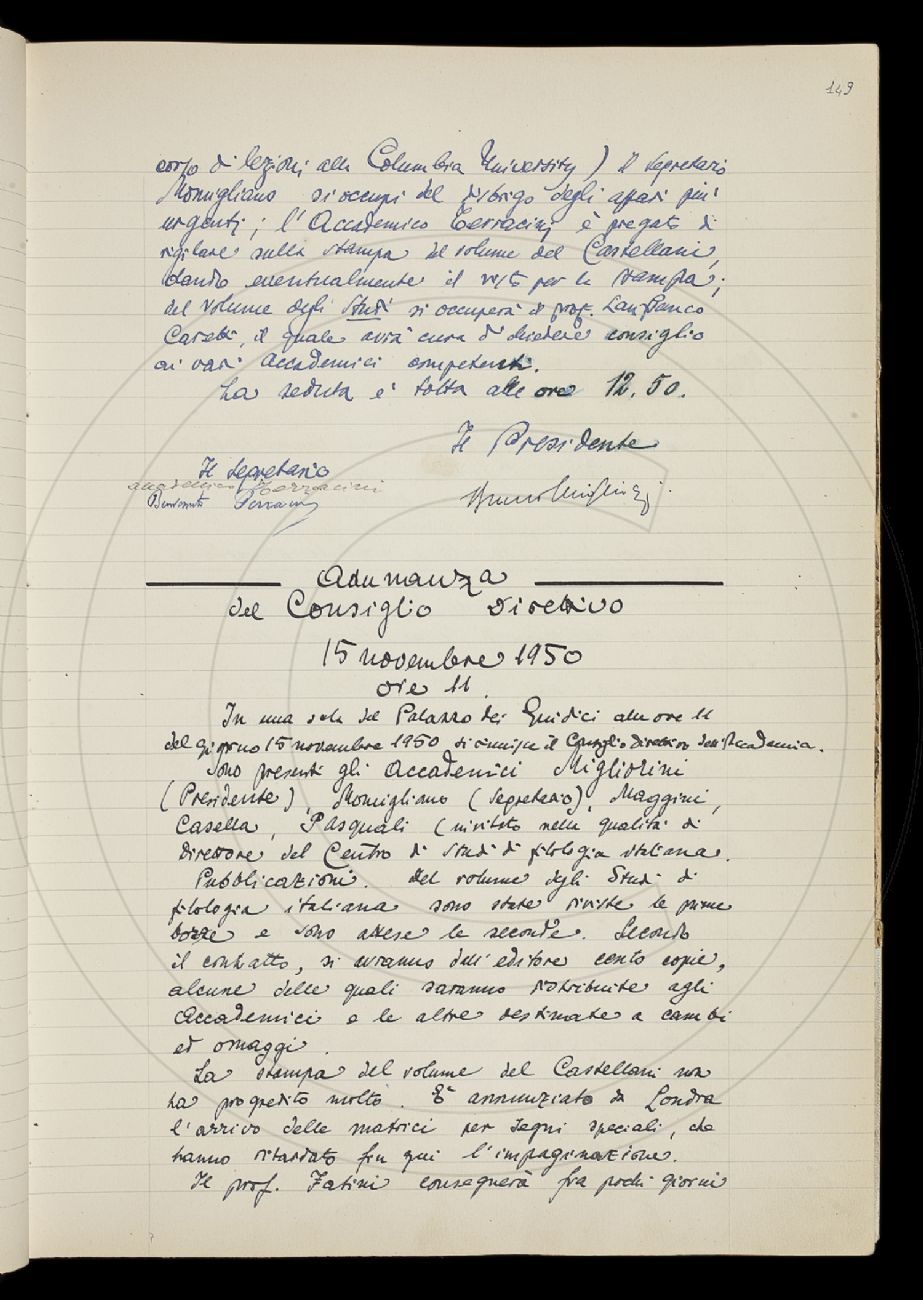 149
corso di lezioni alla Columbia University) il Segretario
Momigliano si occupi del disbrigo degli affari più
urgenti; l'Accademico Terracini è pregato di
vigilare sulla stampa del volume del Castellani,
dando eventualmente il visto per la stampa;
del volume degli Studi si occuperà il prof. Lanfranco
Caretti, il quale avrà cura di chiedere consiglio
ai vari Accademici competenti.
La seduta è tolta alle ore 12.50.
Il Presidente
Il Segretario
accademico Terracini
Benvenuto Terracini
Bruno Migliorini
Adunanza
del Consiglio Direttivo
15 novembre 1950
ore 11.
In una sala del Palazzo dei Giudici alle ore 11
del giorno 15 novembre 1950 si riunisce il Consiglio direttivo dell'Accademia.
Sono presenti gli Accademici Migliorini
(Presidente), Momigliano (Segretario), Maggini,
Casella, Pasquali (invitato nella qualità di
direttore del Centro di Studi di filologia italiana.
Pubblicazioni. Del volume degli Studi di
filologia italiana sono state riviste le prime
bozze e sono attese le seconde. Secondo
il contratto, si avranno dall'editore cento copie,
alcune delle quali saranno distribuite agli
Accademici e le altre destinate a cambi
ed omaggi.
La stampa del volume del Castellani non
ha progredito molto. È annunziato da Londra
l'arrivo delle matrici per segni speciali, che
hanno ritardato fin qui l'impaginazione.
Il prof. Fatini consegnerà fra pochi giorni